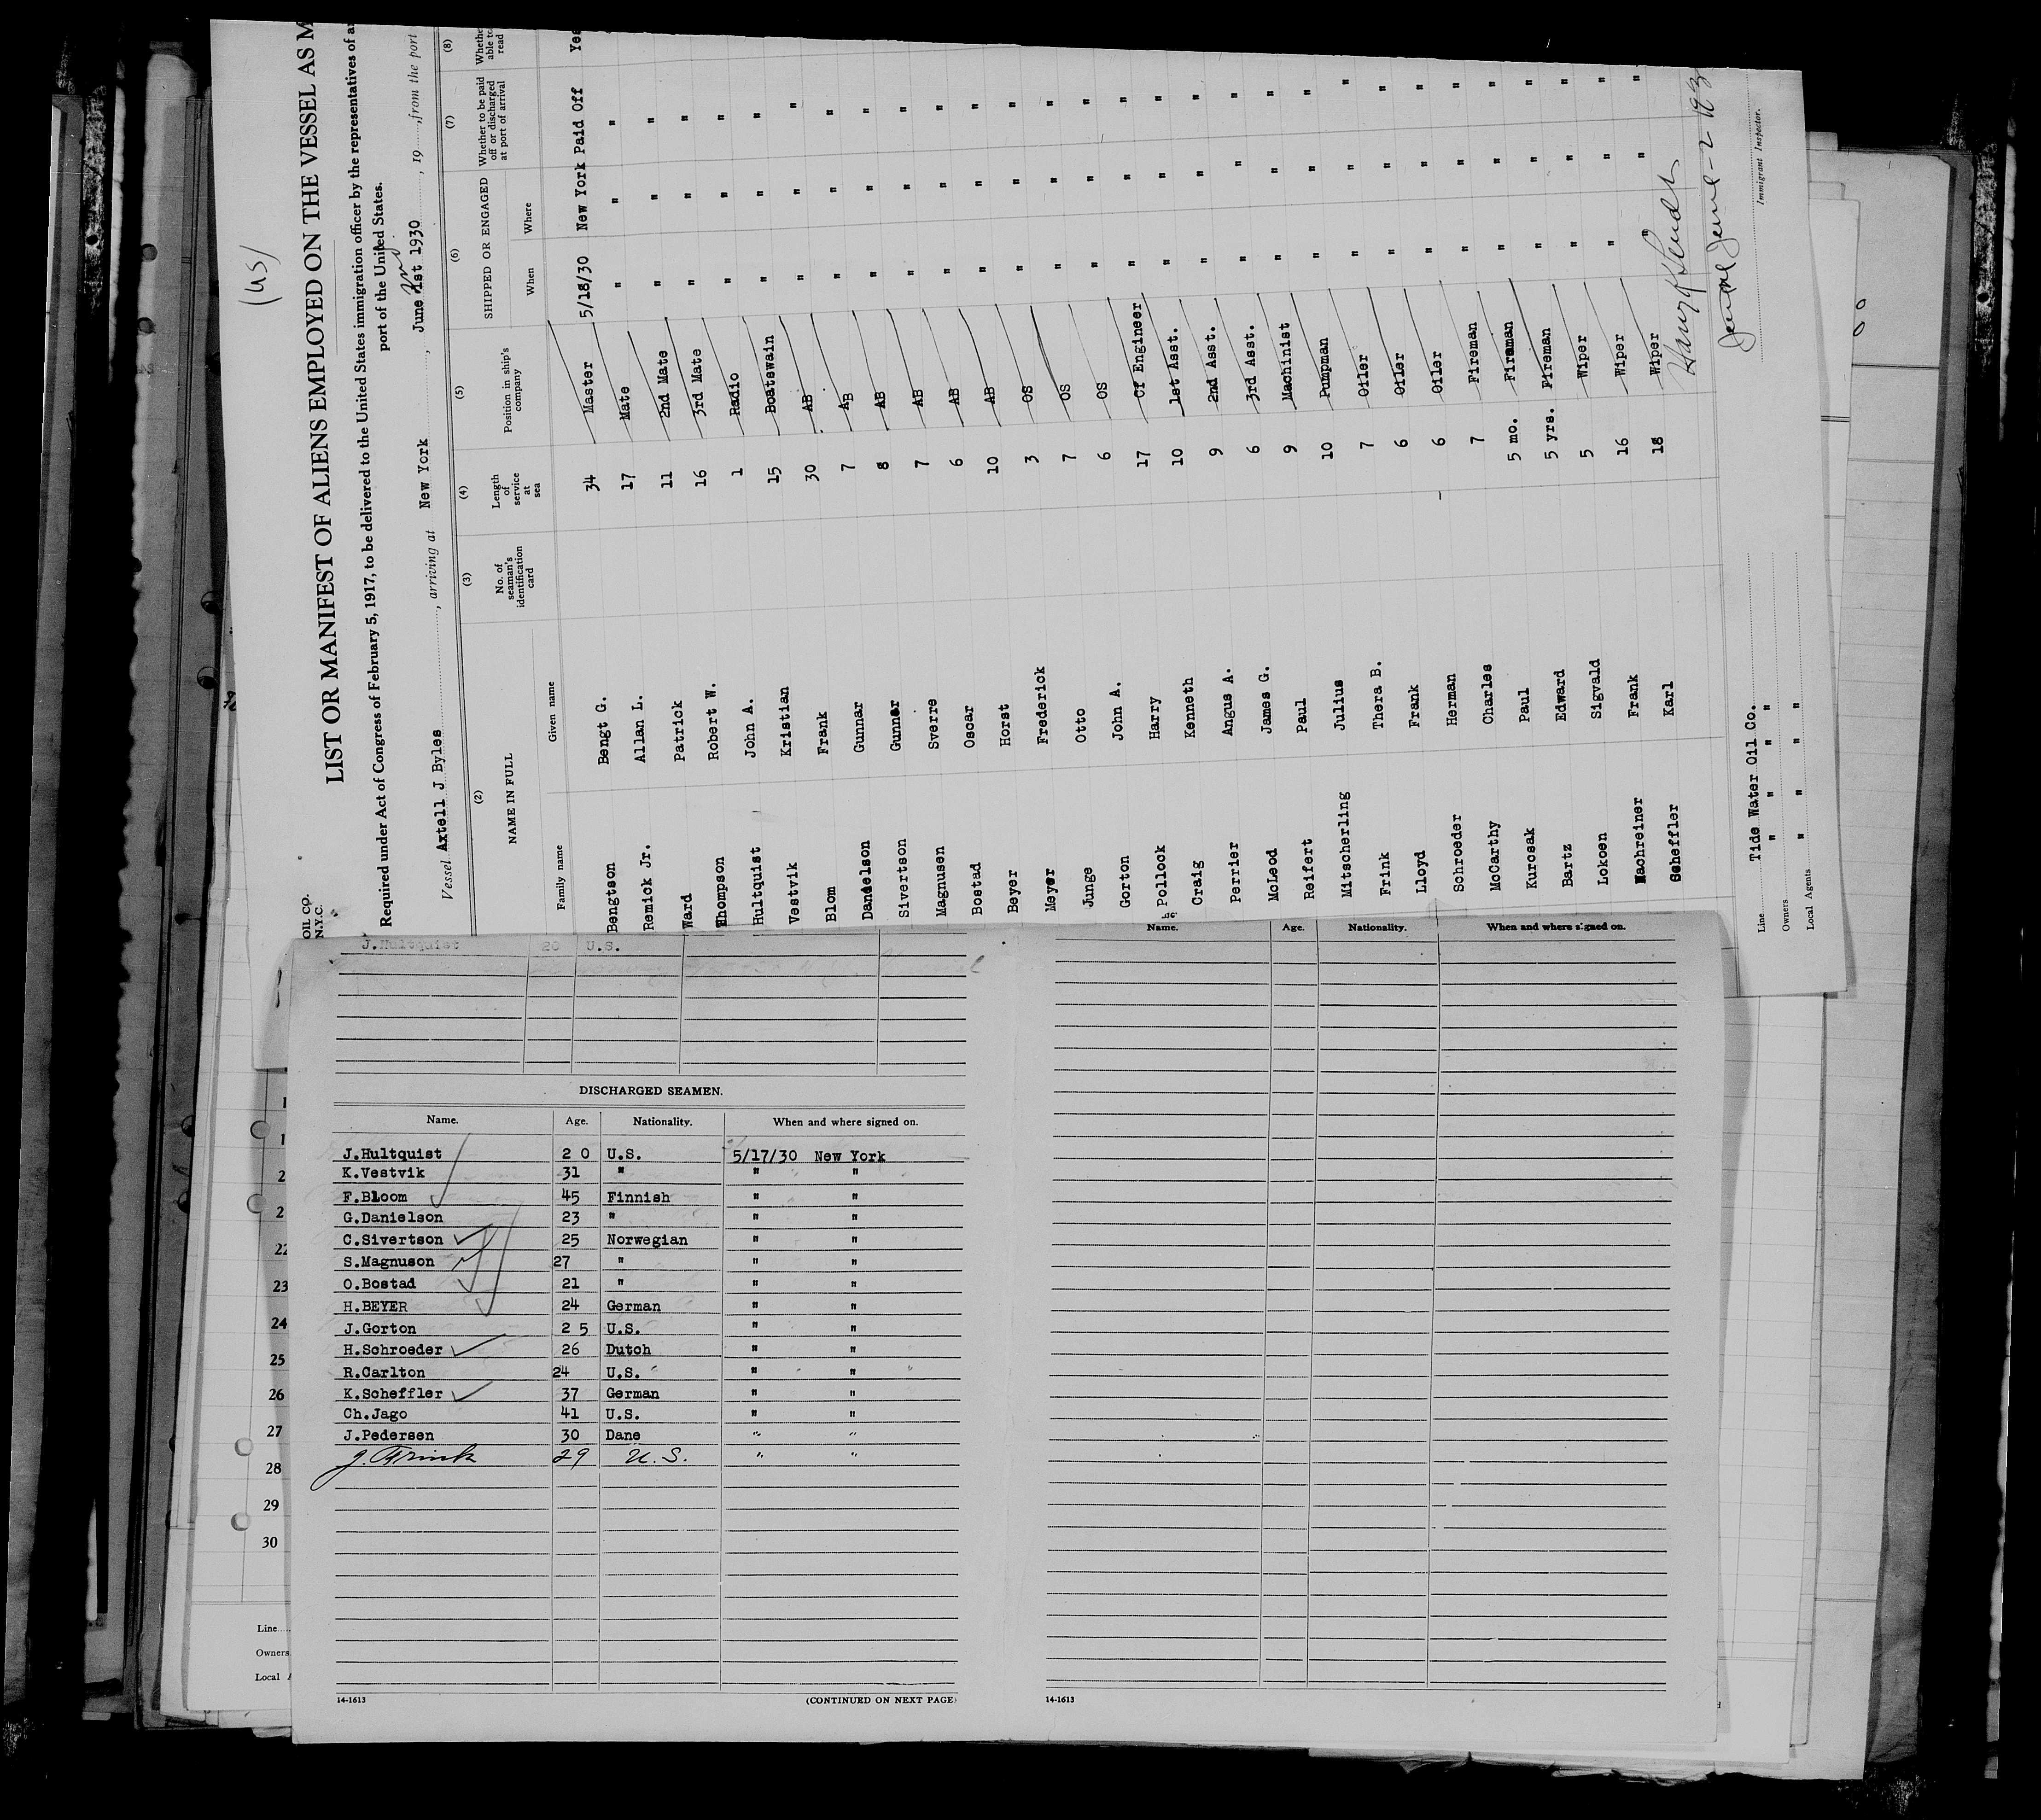 (US)
LIST OR MANIFEST OF ALIENS EMPLOYED ON THE VESSEL AS M
Required under Act of Congress of February 5, 1917, to be delivered to the United States immigration officer by the representatives of a
port of the United States.
Vessel Axtell J Byles, arriving at New York, June 1st 1930, 19, from the port
(2) (3) (4) (5) (6) (7) (8)
NAME IN FULL No. of seaman's identification card Length of service at sea Position in ship's company SHIPPED OR ENGAGED Whether to be paid off or discharged at port of arrival
Family name Given name When Where
Bengtson Bengt G. 34 Master 5/18/30 New York Paid Off Yes
Remick Jr. Allan L. 17 Mate " " "
Ward Patrick 11 2nd Mate " " "
Thompson Robert W. 16 3rd Mate " " "
Hultquist John A. 1 Radio " " "
Vestvik Kristian 15 Boatswain " " "
Blom Frank 30 AB " " "
Danielson Gunnar 7 AB " " "
Sivertson Gunnar 8 AB " " "
Magnusen Sverre 7 AB " " "
Bostad Oscar 6 AB " " "
Beyer Horst 10 AB " " "
Meyer Frederick 3 OS " " "
Junge Otto 7 OS " " "
Gorton John A. 6 OS " " "
Pollock Harry 17 Cf Engineer " " "
Craig Kenneth 10 1st Asst. " " "
Perrier Angus A. 9 2nd Asst. " " "
McLeod James G. 6 3rd Asst. " " "
Reifert Paul 9 Machinist " " "
Mitscherling Julius 10 Pumpman " " "
Frink Thera B. 7 Oiler " " "
Lloyd Frank 6 Oiler " " "
Schroeder Herman 6 Oiler " " "
McCarthy Charles 7 Fireman " " "
Kurosak Paul 5 mo. Fireman " " "
Bartz Edward 5 yrs. Fireman " " "
Lokoen Sigvald 5 Wiper " " "
Machreiner Frank 16 Wiper " " "
Scheffler Karl 18 Wiper " " "
Immigrant Inspector.
Line Tide Water Oil Co.
Owners " " " "
Local Agents " " " "
OIL CO.
N.Y.C.
J.Hultquist 20 U.S.
DISCHARGED SEAMEN.
Name. Age. Nationality. When and where signed on.
J.Hultquist 2 0 U.S. 5/17/30 New York
K.Vestvik 31 " " "
F.Bloom 45 Finnish " "
G.Danielson 23 " " "
C.Sivertson 25 Norwegian " "
S.Magnuson 27 " " "
O.Bostad 21 " " "
H.BEYER 24 German " "
J.Gorton 2 5 U.S. " "
H.Schroeder 26 Dutch " "
R.Carlton 24 U.S. " "
K.Scheffler 37 German " "
Ch.Jago 41 U.S. " "
J.Pedersen 30 Dane " "
J. Frink 29 U.S. " "
14-1613 (CONTINUED ON NEXT PAGE)
Name. Age. Nationality. When and where signed on.
14-1613
22
23
24
25
26
27
28
29
30
Line
Owners
Local A